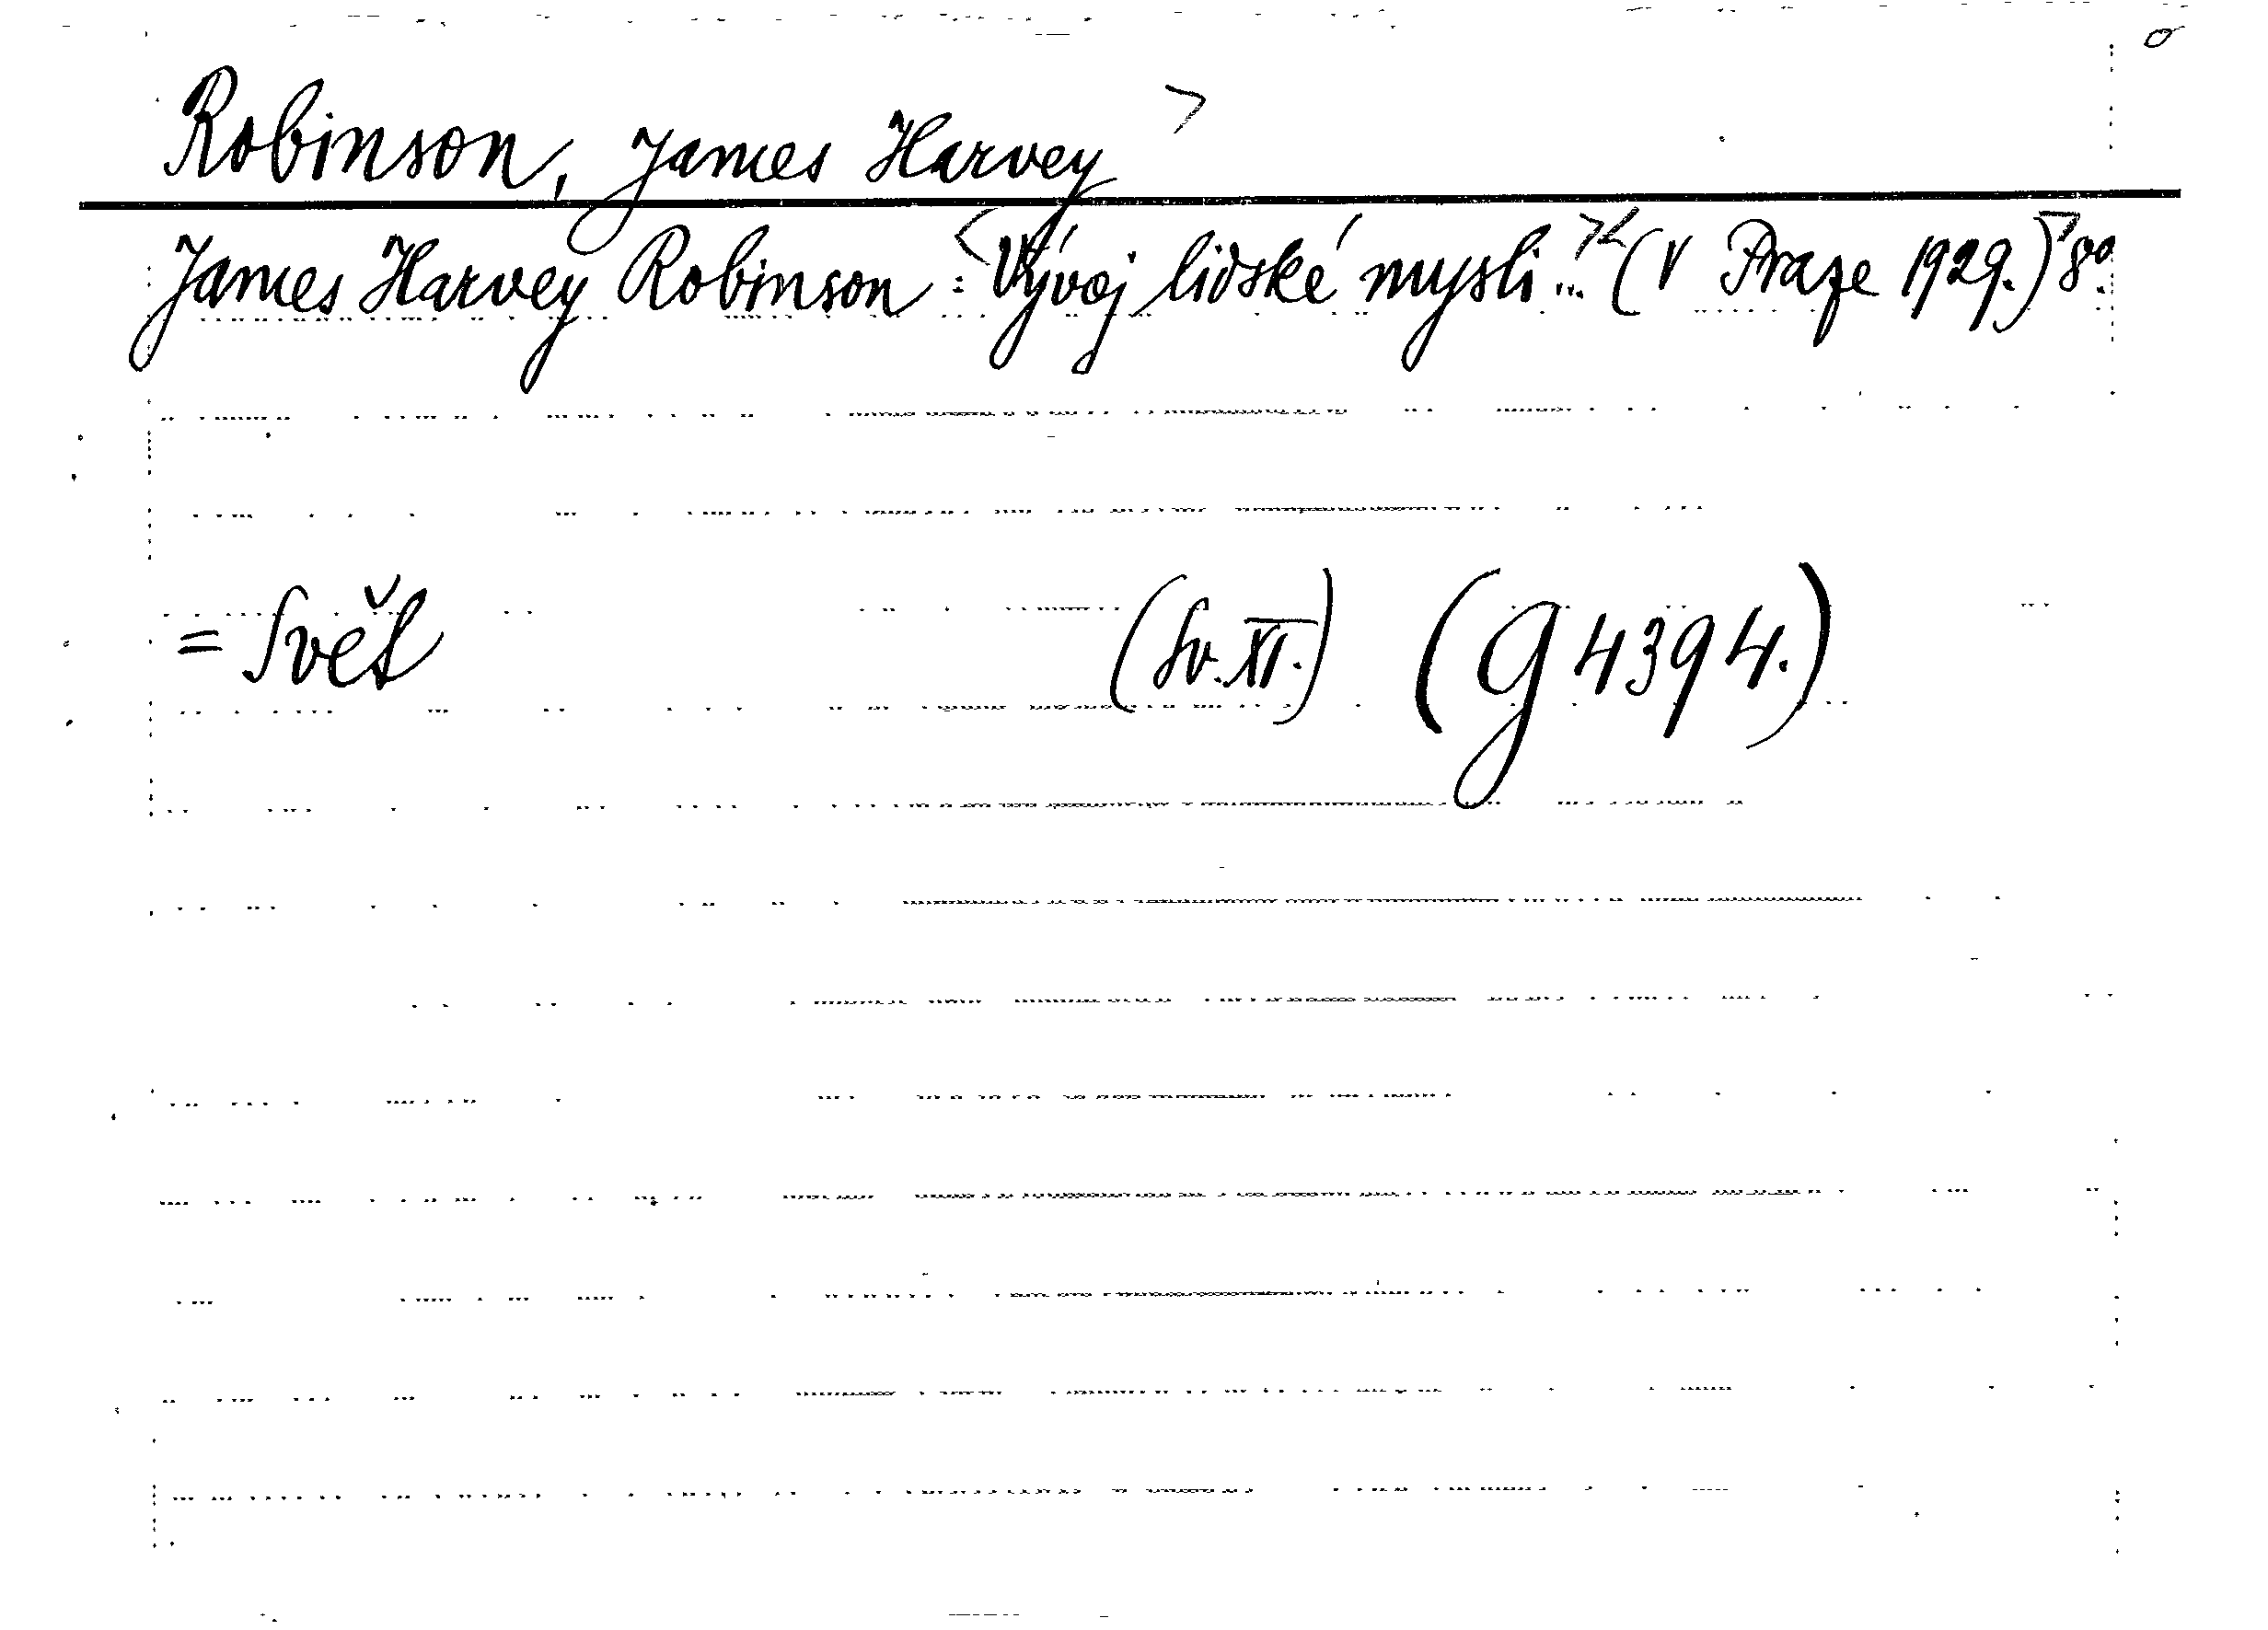 Robinson, James Harvey >
James Harvey Robinson: <Vývoj lidské mysli...>< (V Praze 1929.)> 8°.
= Svět (Sv. XI.) (G 4394.)